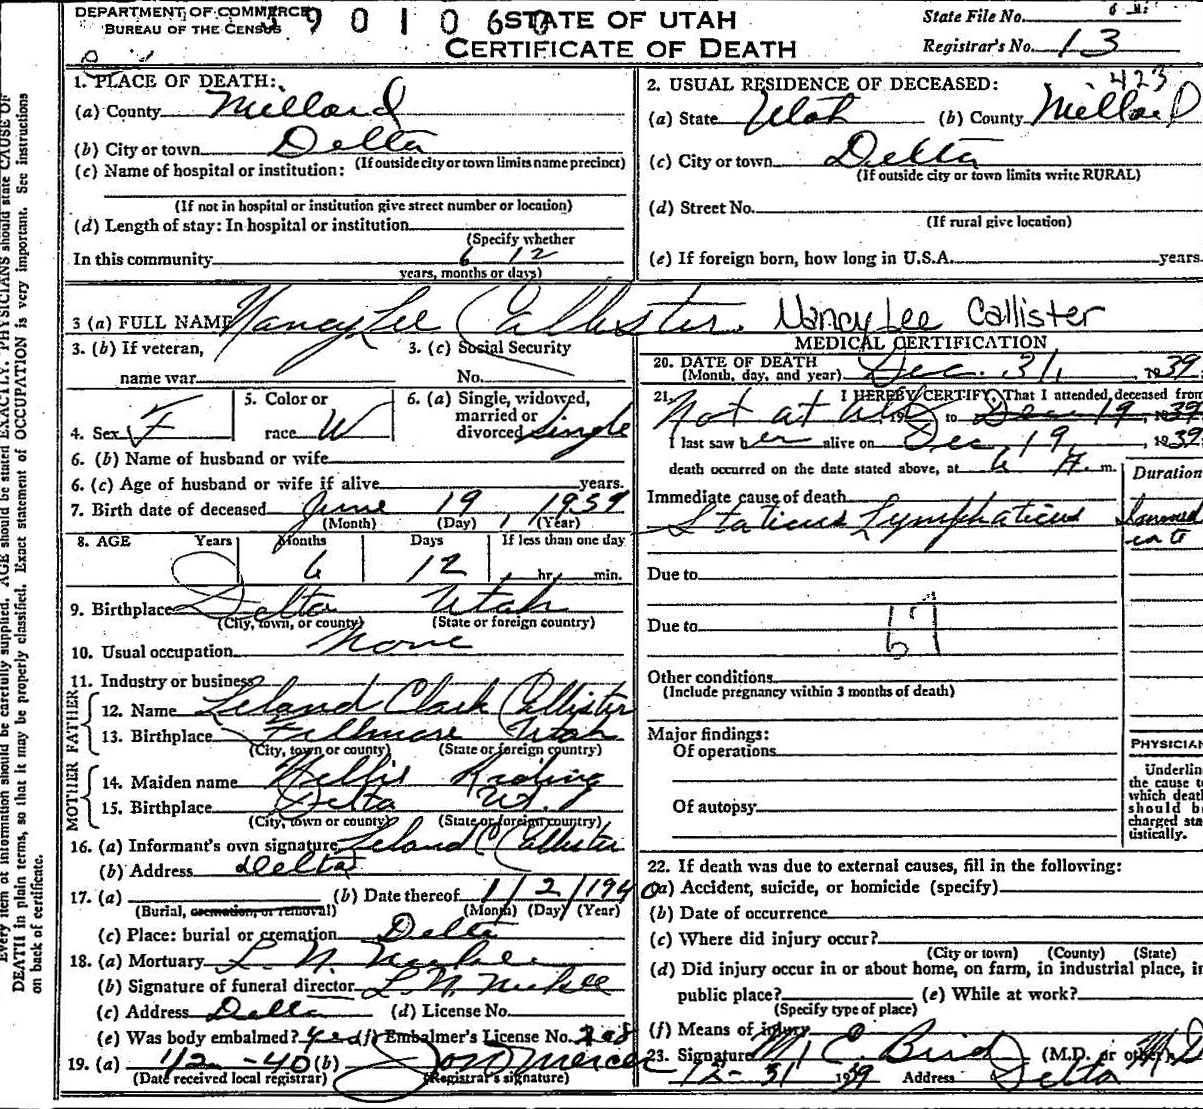 DEPARTMENT OF COMMERCE
BUREAU OF THE CENSUS
9 0 1 0 6 0
STATE OF UTAH
CERTIFICATE OF DEATH
State File No.
Registrar's No. 13
Every item of information should be carefully supplied. AGE should be stated EXACTLY. PHYSICIANS should state CAUSE OF
DEATH in plain terms, so that it may be properly classified. Exact statement of OCCUPATION is very important. See instructions
on back of certificate.
1. PLACE OF DEATH:
(a) County Millard
(b) City or town Delta
(If outside city or town limits name precinct)
(c) Name of hospital or institution:
(If not in hospital or institution give street number or location)
(d) Length of stay: In hospital or institution
(Specify whether
In this community 6 12
years, months or days)
2. USUAL RESIDENCE OF DECEASED: 423
(a) State Utah (b) County Millard
(c) City or town Delta
(If outside city or town limits write RURAL)
(d) Street No.
(If rural give location)
(e) If foreign born, how long in U.S.A. years.
3 (a) FULL NAME Nancy Lee Callister. Nancy Lee Callister
3. (b) If veteran,
name war
3. (c) Social Security
No.
4. Sex F
5. Color or
race W
6. (a) Single, widowed,
married or
divorced Single
6. (b) Name of husband or wife
6. (c) Age of husband or wife if alive years.
7. Birth date of deceased June 19, 1939
(Month) (Day) (Year)
8. AGE Years Months Days If less than one day
6 12 hr. min.
9. Birthplace Delta Utah
(City, town, or county) (State or foreign country)
10. Usual occupation None
11. Industry or business
FATHER
12. Name Leland Clark Callister
13. Birthplace Fillmore Utah
(City, town or county) (State or foreign country)
MOTHER
14. Maiden name
15. Birthplace Delta Ut.
(City, town or county) (State or foreign country)
16. (a) Informant's own signature Leland C Callister
(b) Address Delta
17. (a) (b) Date thereof 1/2/1940
(Burial, cremation, or removal) (Month) (Day) (Year)
(c) Place: burial or cremation Delta
18. (a) Mortuary L. N.
(b) Signature of funeral director L. N.
(c) Address Delta (d) License No.
(e) Was body embalmed? yes (f) Embalmer's License No. 208
19. (a) 1/2-40 (b)
(Date received local registrar) (Registrar's signature)
MEDICAL CERTIFICATION
20. DATE OF DEATH
(Month, day, and year) Dec. 31, 1939.
21. I HEREBY CERTIFY, That I attended deceased from
Not at all 19 to Dec 19 1939
I last saw her alive on Dec, 19, 1939.
death occurred on the date stated above, at 6 A. m.
Immediate cause of death
Staticus Lymphaticus
Duration
Due to
Due to
Other conditions
(Include pregnancy within 3 months of death)
Major findings:
Of operations
Of autopsy
PHYSICIAN
Underline
the cause to
which death
should be
charged sta-
tistically.
22. If death was due to external causes, fill in the following:
(a) Accident, suicide, or homicide (specify)
(b) Date of occurrence
(c) Where did injury occur?
(City or town) (County) (State)
(d) Did injury occur in or about home, on farm, in industrial place, in
public place? (e) While at work?
(Specify type of place)
(f) Means of injury
23. Signature M. C. Bird (M.D. or other) M D
12-31 1939 Address Delta